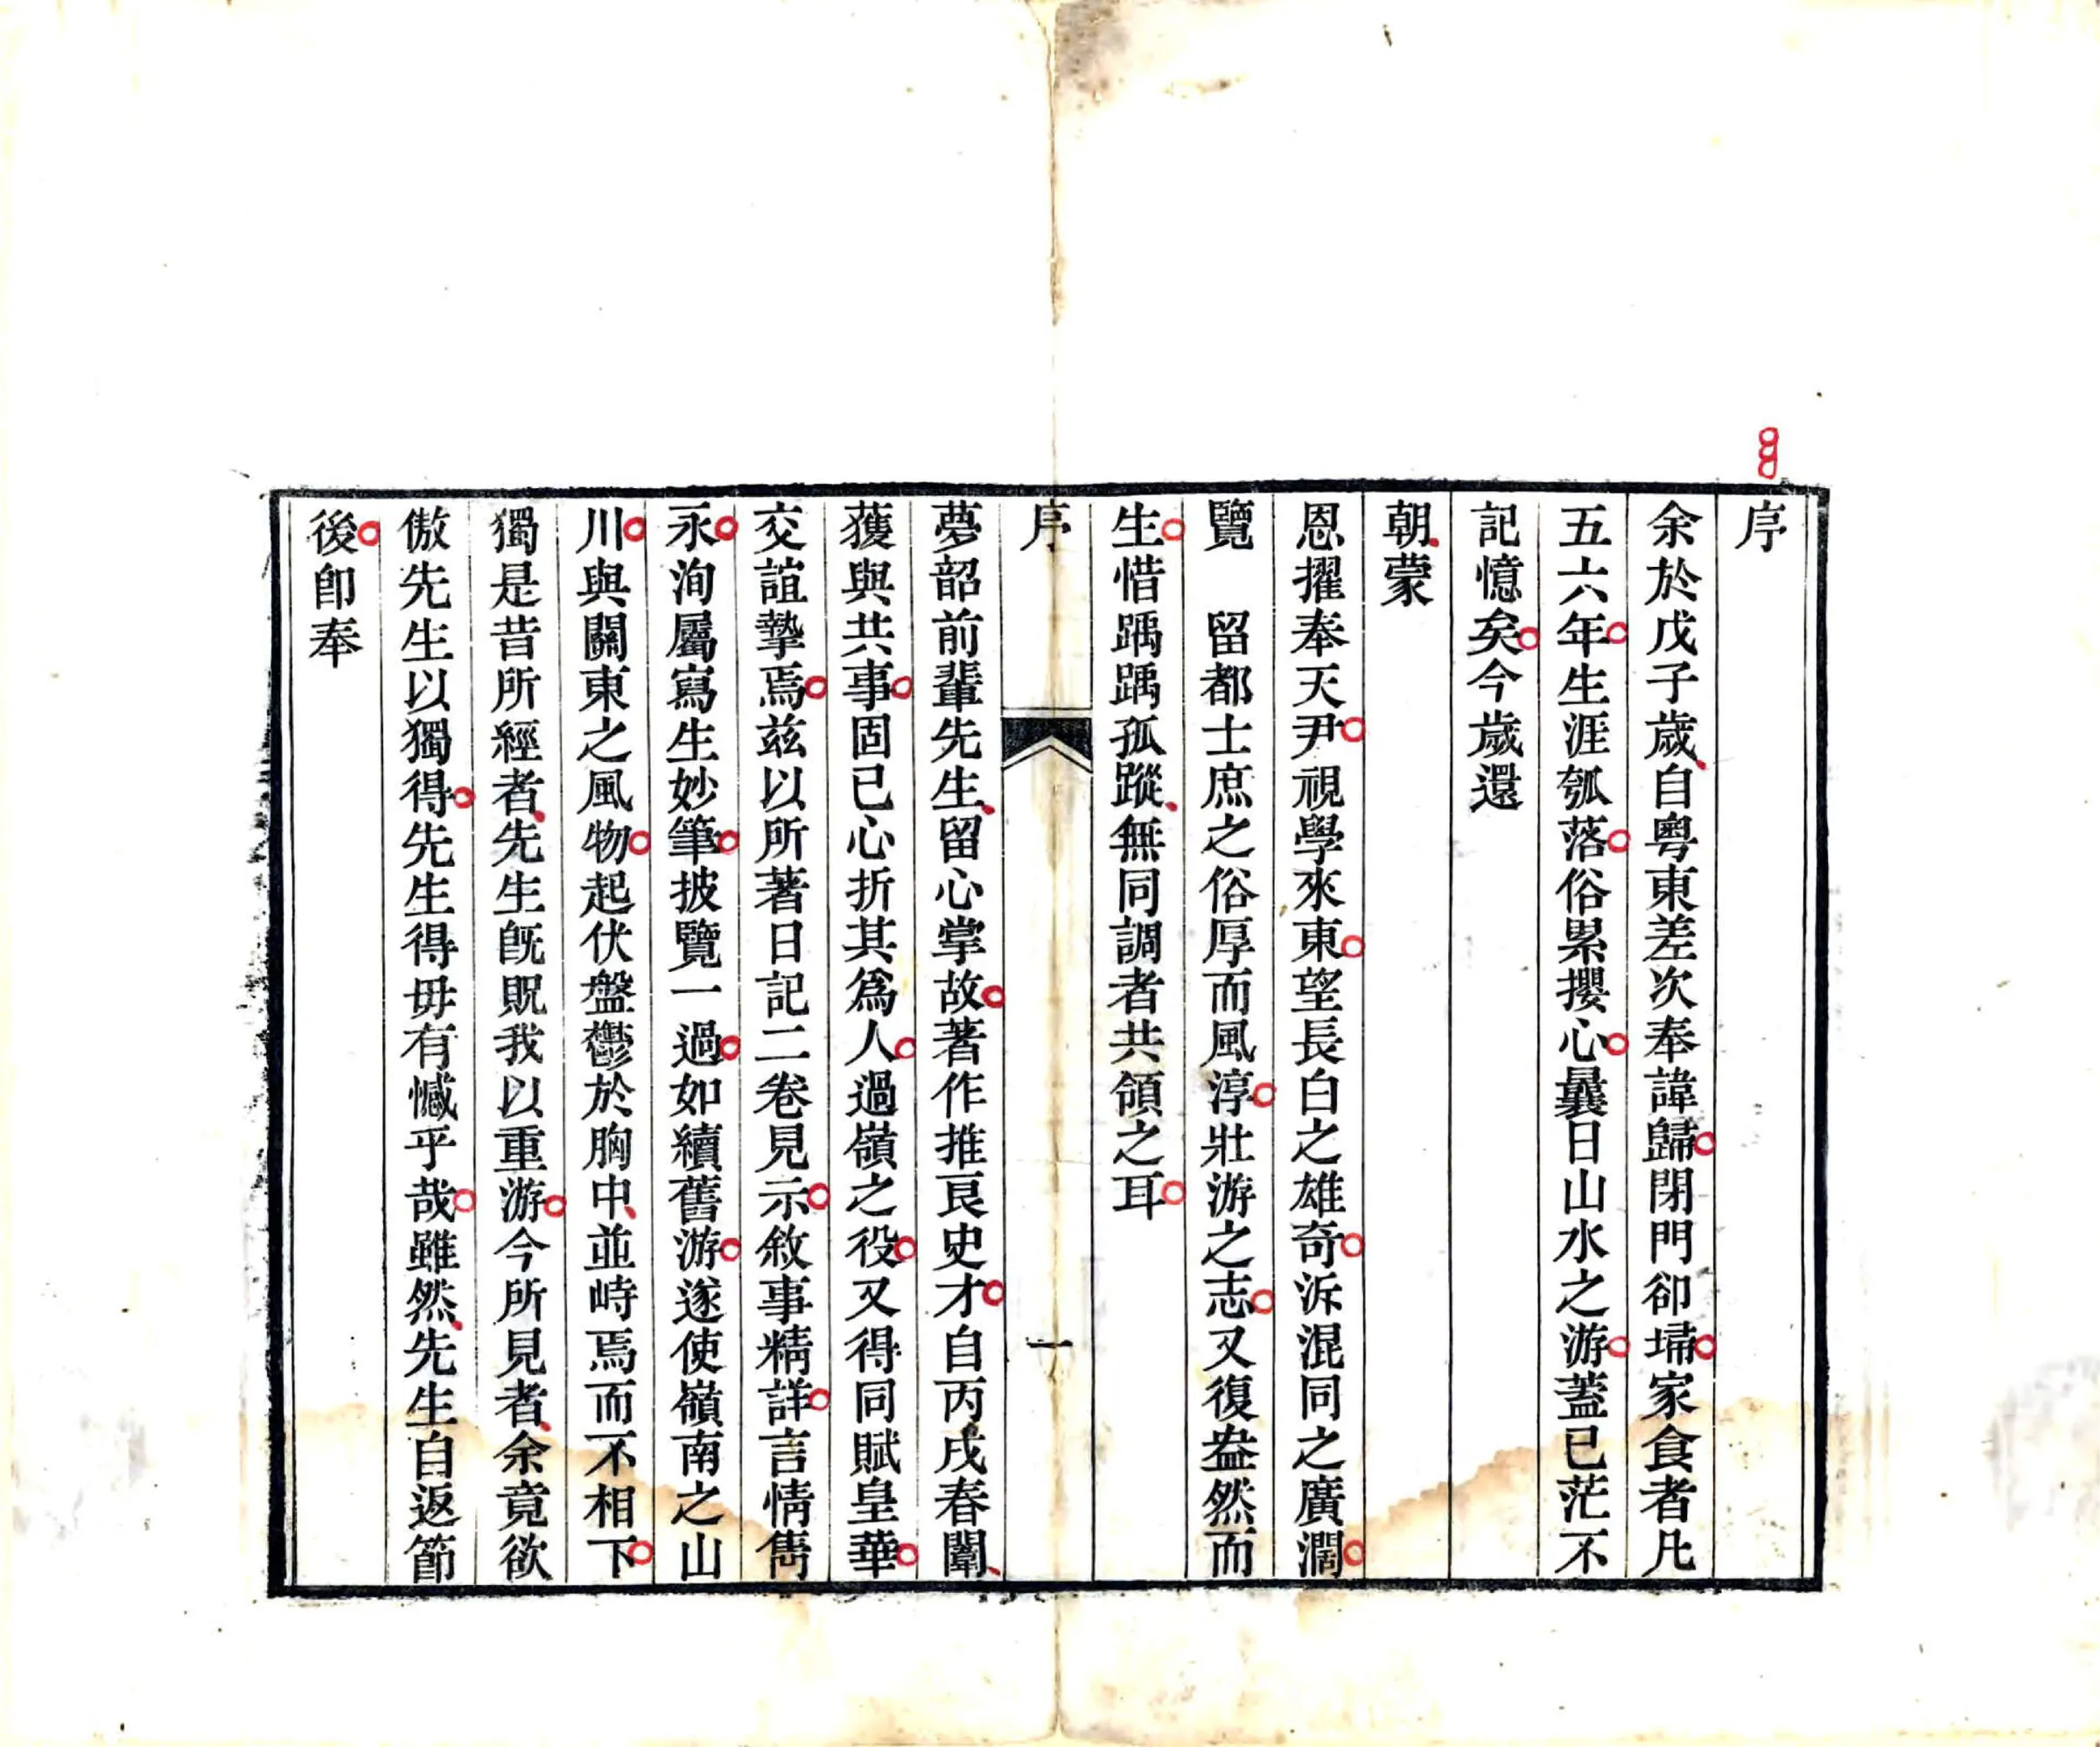 序
余於戊子歲自粵東差次奉諱歸閉門卻埽家食者凡
五六年生涯瓠落俗累攖心曩日山水之游蓋已茫不
記憶矣今歲還
朝蒙
恩擢奉天尹視學來東望長白之雄奇泝混同之廣濶
覽　留都士庶之俗厚而風淳壯游之志又復盎然而
生惜踽踽孤蹤無同調者共領之耳
序　一
夢韶前輩先生留心掌故著作推良史才自丙戌春闈
獲與共事固已心折其爲人過嶺之役又得同賦皇華
交誼摯焉兹以所著日記二卷見示敘事精詳言情雋
永洵屬寫生妙筆披覽一過如續舊游遂使嶺南之山
川與關東之風物起伏盤鬱於胸中並峙焉而不相下
獨是昔所經者先生旣貺我以重游今所見者余竟欲
傲先生以獨得先生得毋有憾乎哉雖然先生自返節
後卽奉